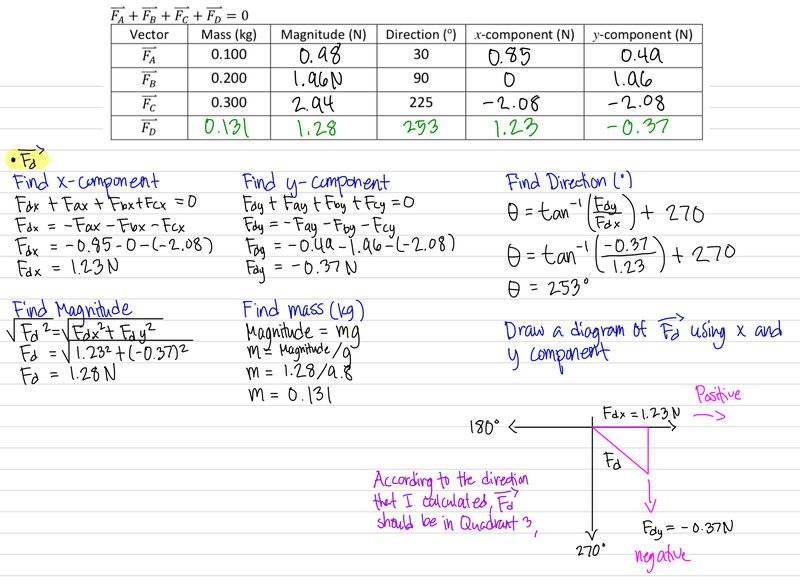 F_A + F_B + F_C + F_D = 0
Vector Mass (kg) Magnitude (N) Direction (°) x-component (N) y-component (N)
F_A 0.100 0.98 30 0.85 0.49
F_B 0.200 1.96N 90 0 1.96
F_C 0.300 2.94 225 -2.08 -2.08
F_D 0.131 1.28 253 1.23 -0.37
• Fd
Find x-component
Fdx + Fax + Fbx + Fcx = 0
Fdx = -Fax - Fbx - Fcx
Fdx = -0.85 - 0 - (-2.08)
Fdx = 1.23 N
Find y-component
Fdy + Fay + Fby + Fcy = 0
Fdy = -Fay - Fby - Fcy
Fdy = -0.49 - 1.96 - (-2.08)
Fdy = -0.37 N
Find Direction (°)
θ = tan⁻¹ (Fdy/Fdx) + 270
θ = tan⁻¹ (-0.37/1.23) + 270
θ = 253°
Find Magnitude
√Fd² = √Fdx² + Fdy²
Fd = √1.23² + (-0.37)²
Fd = 1.28 N
Find mass (kg)
Magnitude = mg
m = Magnitude/g
m = 1.28/9.8
m = 0.131
Draw a diagram of Fd using x and
y component
Positive
Fdx = 1.23 N
180°
Fd
According to the direction
that I calculated, Fd
should be in Quadrant 3,
Fdy = -0.37N
270°
negative